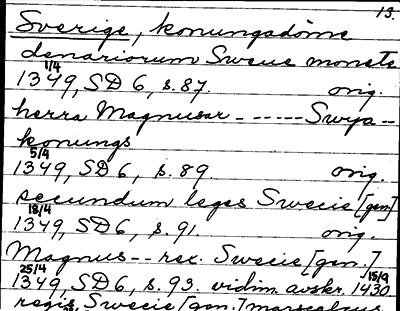 13.
Sverige, konungadöme
denariorum Swecie monete
1/4
1349, SD 6, s. 87. orig.
herra Magnusar - - - - - - Swya -
konungs
5/4
1349, SD 6, s. 89. orig.
secundum leges Swecie [gen]
18/4
1349, SD 6, s. 91. orig.
Magnus - - rex Swecie [gen.]
25/4 15/9
1349, SD 6, s. 93. vidim. avskr. 1430.
regis Swecie [gen.] marscalcus